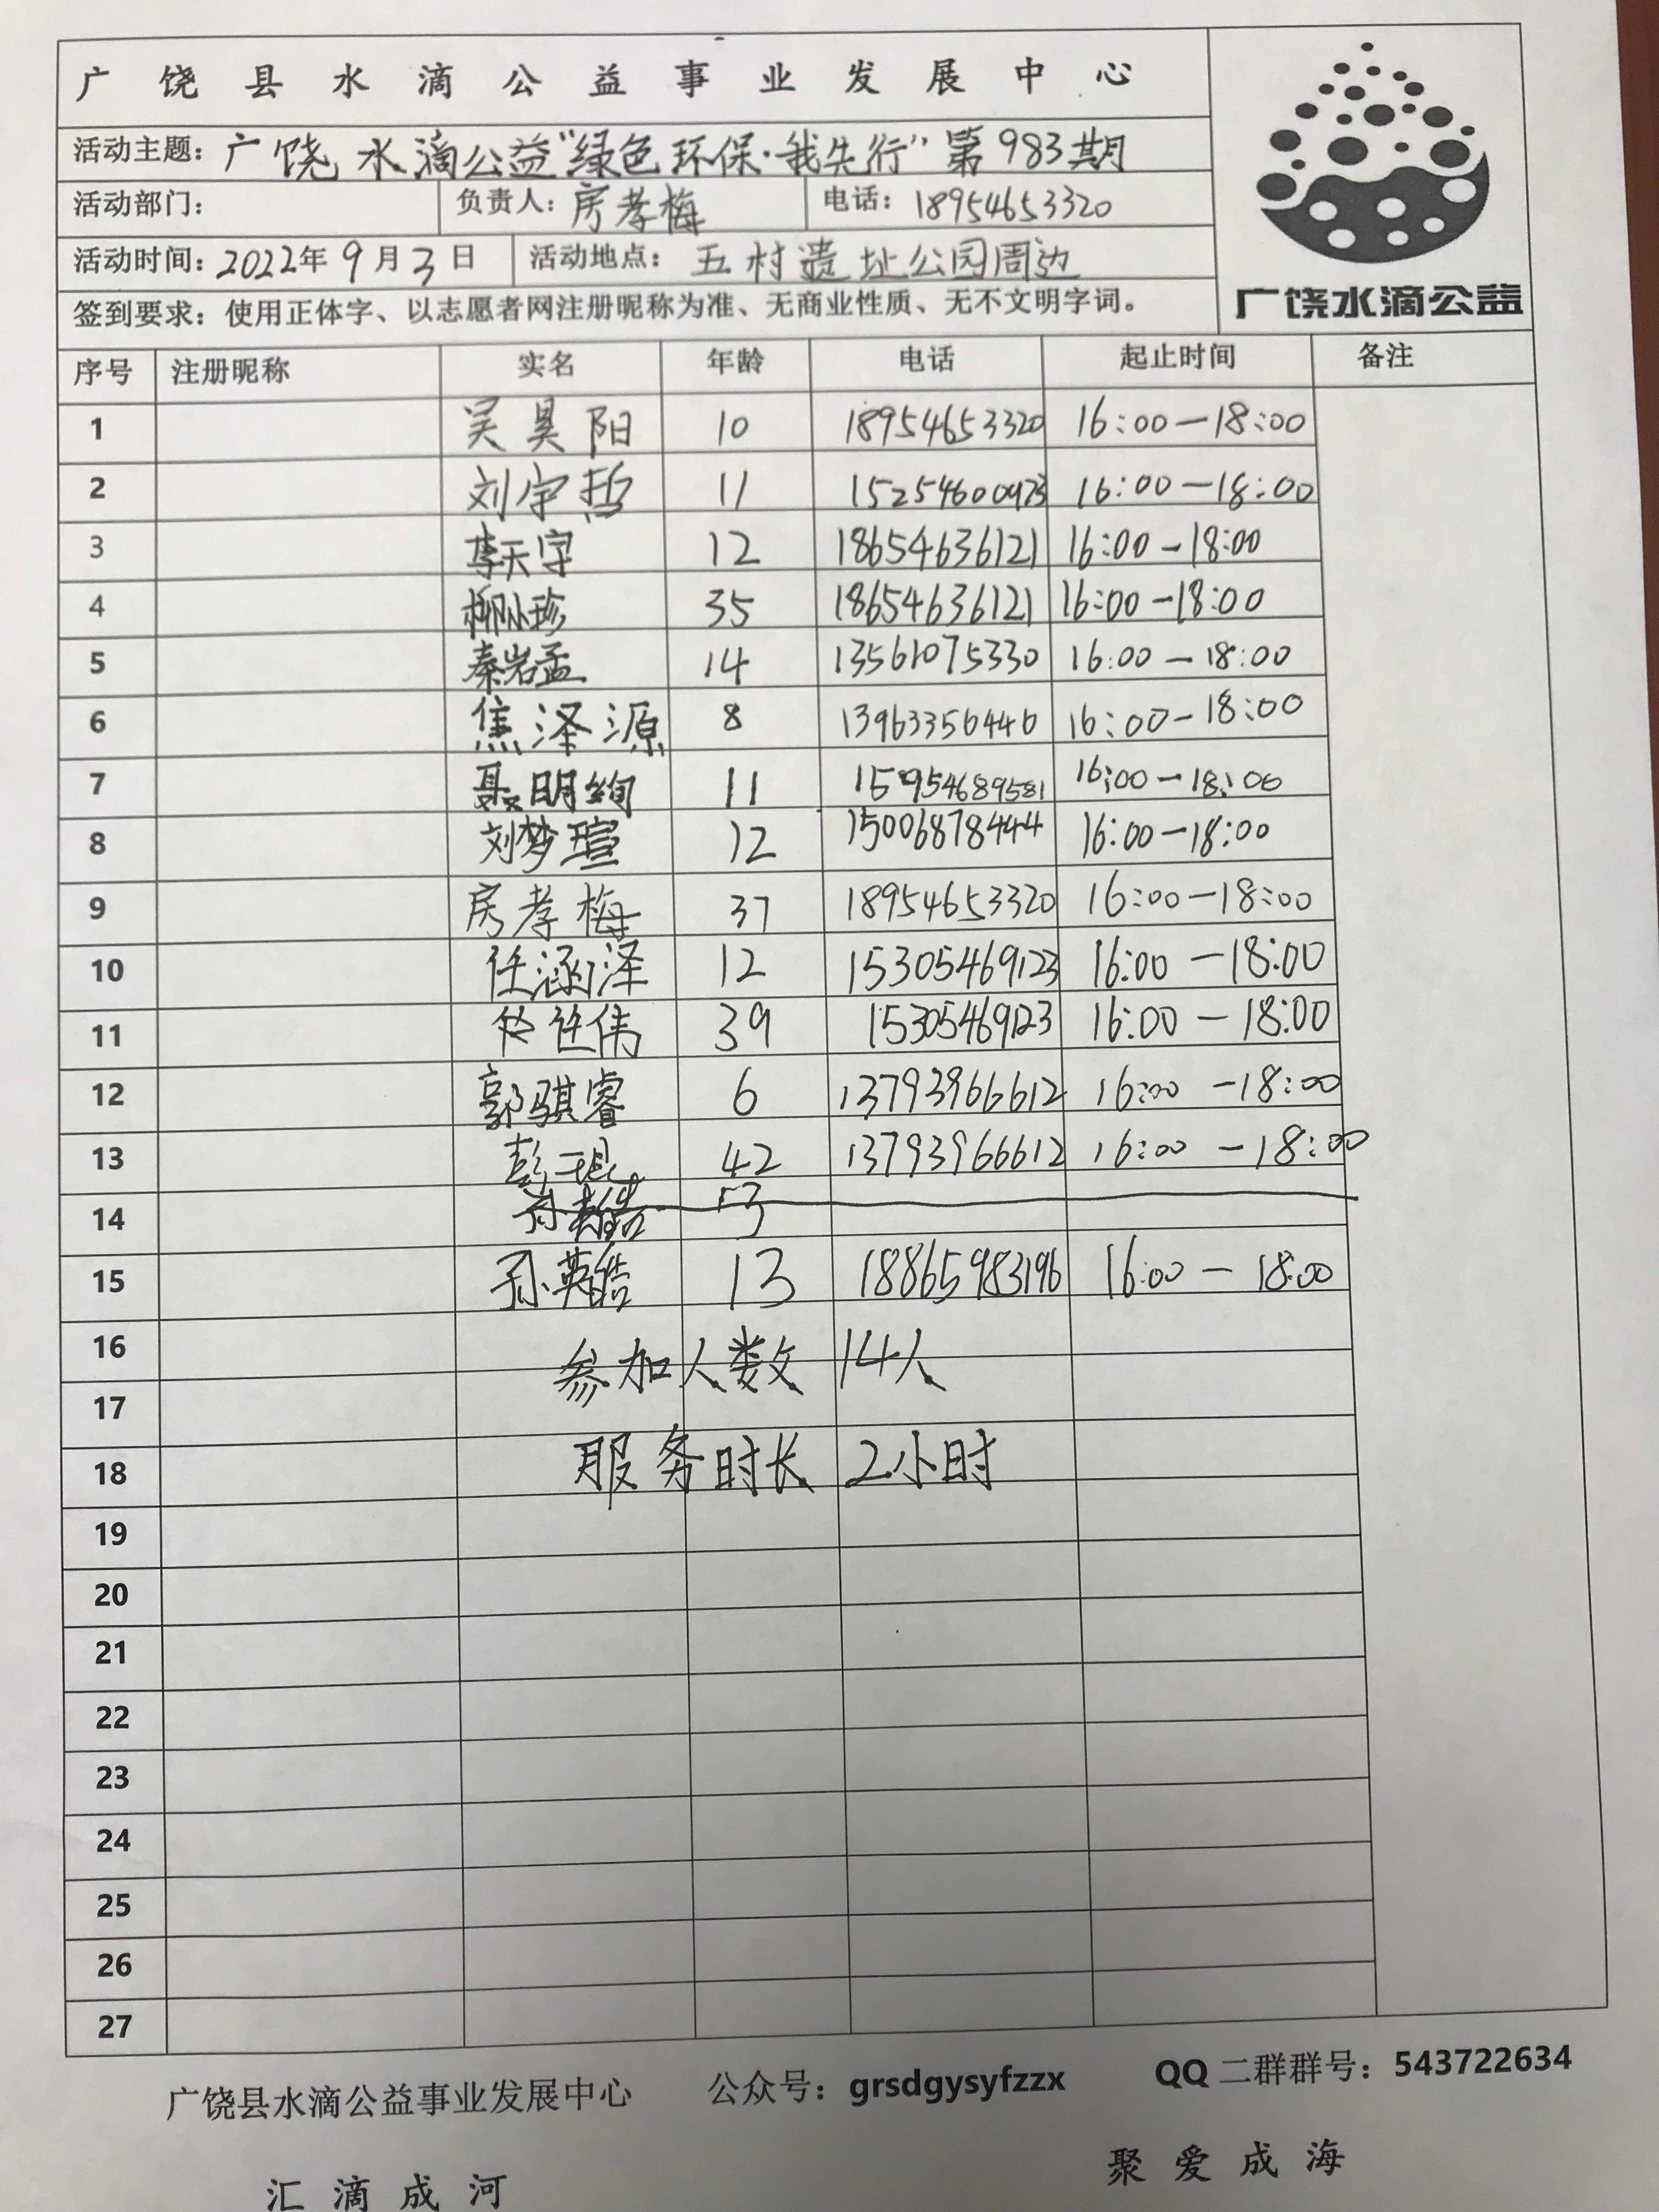 广饶县水滴公益事业发展中心
活动主题：广饶水滴公益“绿色环保·我先行”第983期
活动部门： 负责人：房孝梅 电话：18954653320
活动时间：2022年9月3日 活动地点：五村遗址公园周边
签到要求：使用正体字、以志愿者网注册昵称为准、无商业性质、无不文明字词。
广饶水滴公益
序号 注册昵称 实名 年龄 电话 起止时间 备注
1 吴昊阳 10 18954653320 16:00—18:00
2 刘宇哲 11 15254600973 16:00—18:00
3 李天宇 12 18654636121 16:00—18:00
4 柳小珍 35 18654636121 16:00—18:00
5 秦岩孟 14 13561075330 16:00—18:00
6 焦泽源 8 13963356446 16:00—18:00
7 聂明绚 11 15954689581 16:00—18:00
8 刘梦瑄 12 15006878444 16:00—18:00
9 房孝梅 37 18954653320 16:00—18:00
10 任涵泽 12 15305469123 16:00—18:00
11 任伟 39 15305469123 16:00—18:00
12 郭骐睿 6 13793966612 16:00—18:00
13 彭琨 42 13793966612 16:00—18:00
14
15 孙英皓 13 18865983196 16:00—18:00
16 参加人数 14人
17
18 服务时长 2小时
19
20
21
22
23
24
25
26
27
广饶县水滴公益事业发展中心 公众号：grsdgysyfzzx QQ二群群号：543722634
汇滴成河 聚爱成海